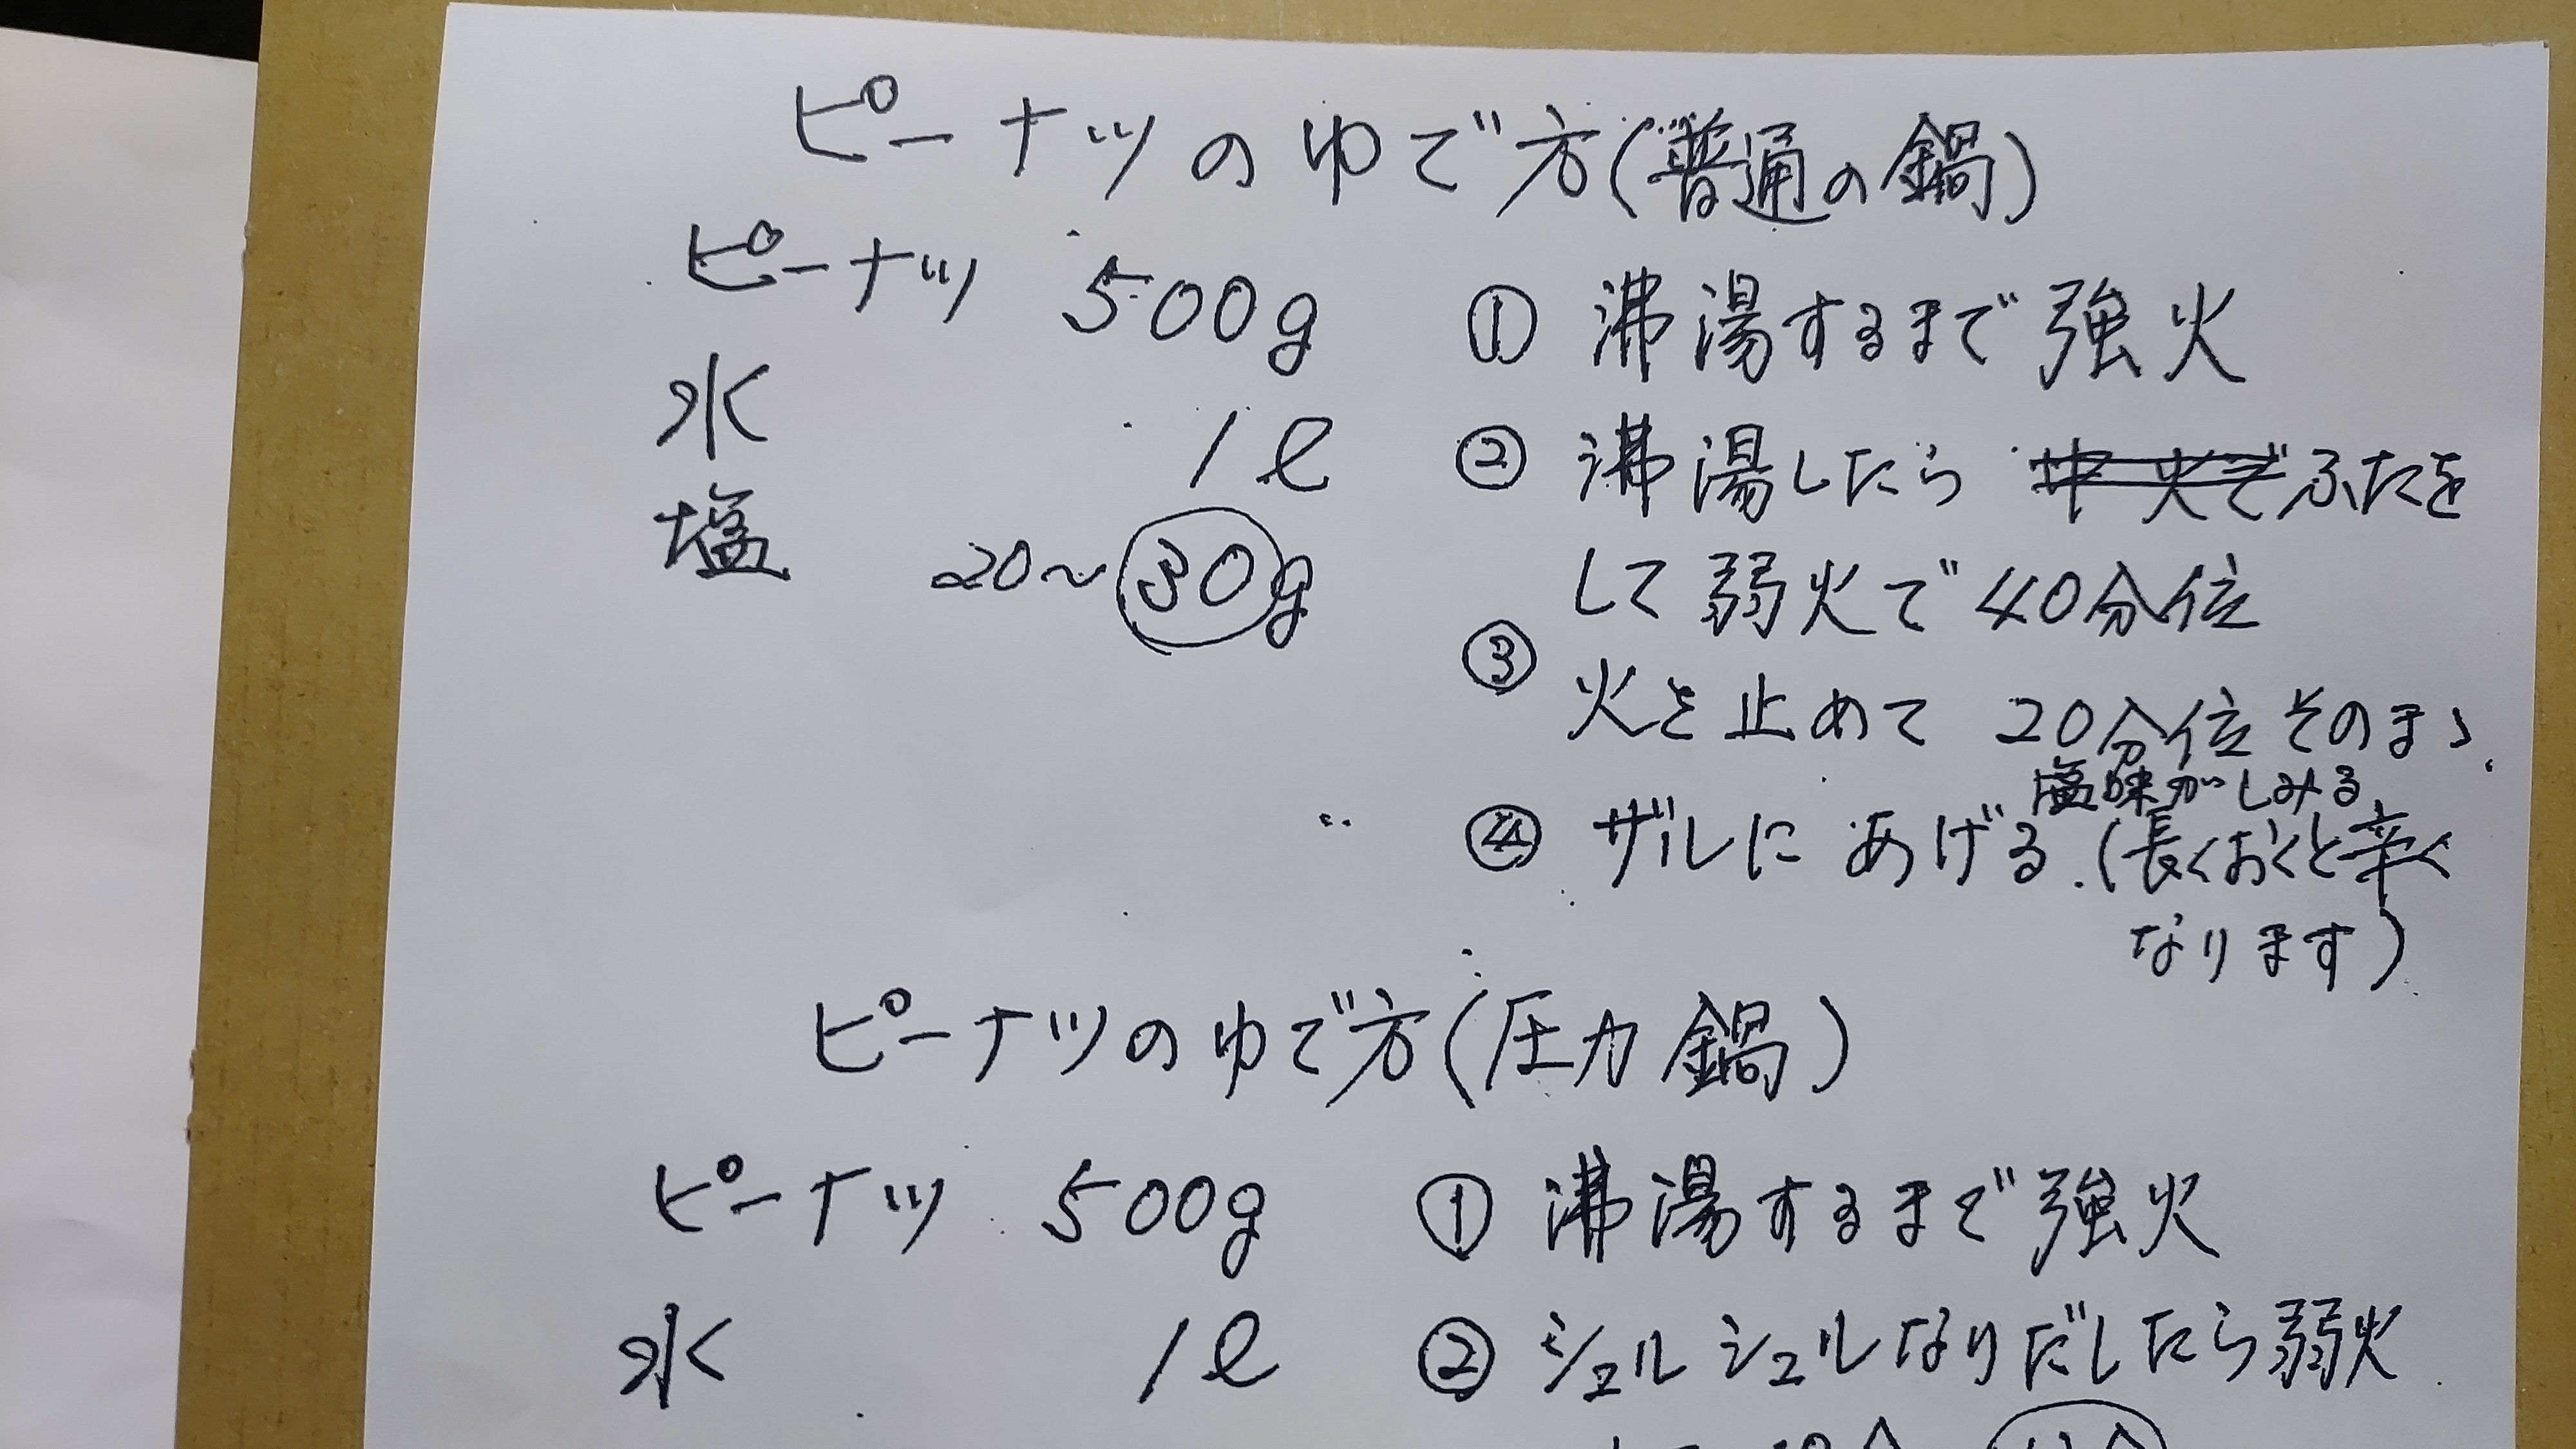 ピーナツのゆで方(普通の鍋)
ピーナツ 500g
水 1ℓ
塩 20〜30g
① 沸湯するまで強火
② 沸湯したら 中火でふたを
して弱火で40分位
③ 火を止めて 20分位そのまゝ
塩味がしみる
④ ザルにあげる.(長くおくと辛く
なります)
ピーナツのゆで方(圧力鍋)
ピーナツ 500g
水 1ℓ
① 沸湯するまで強火
② シュルシュルなりだしたら弱火